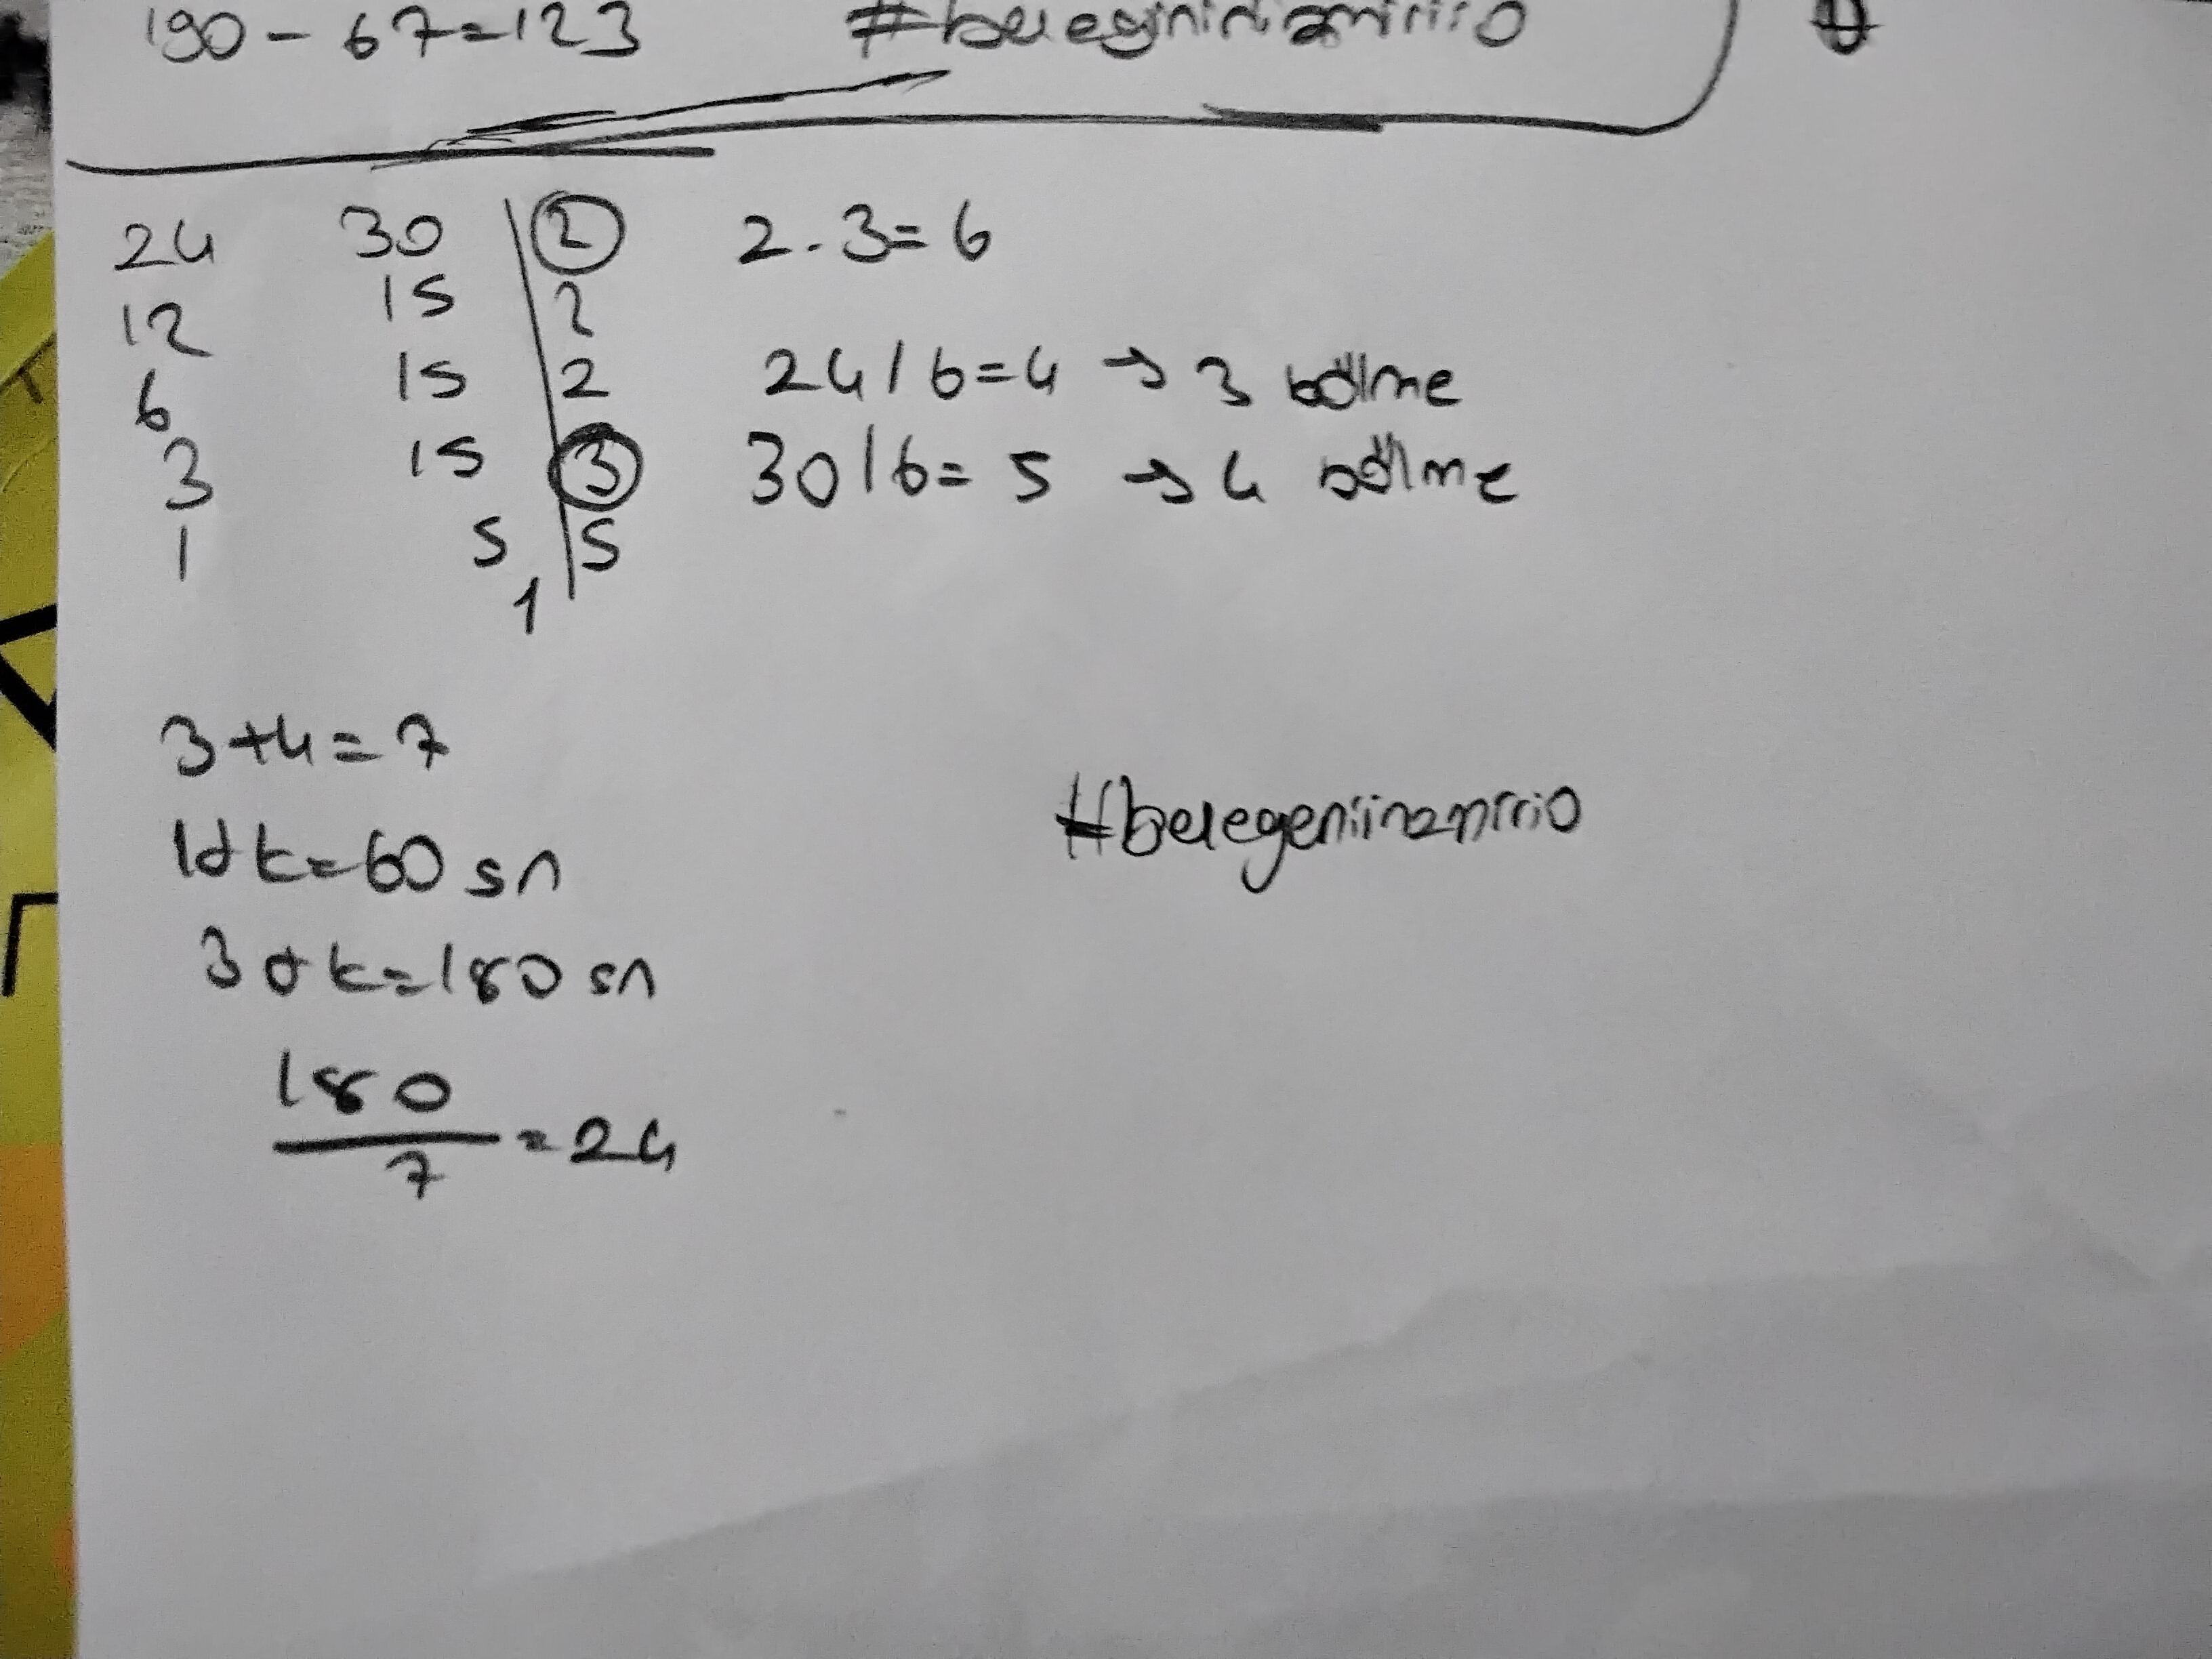 190 - 67 = 123
24 30 2 2 . 3 = 6
12 15 2
6 15 2 24 / 6 = 4 → 3 bölme
3 15 3 30 / 6 = 5 → 4 bölme
1 5 5
1
3 + 4 = 7
1dk = 60 sn
3 dk = 180 sn
180
7
= 24